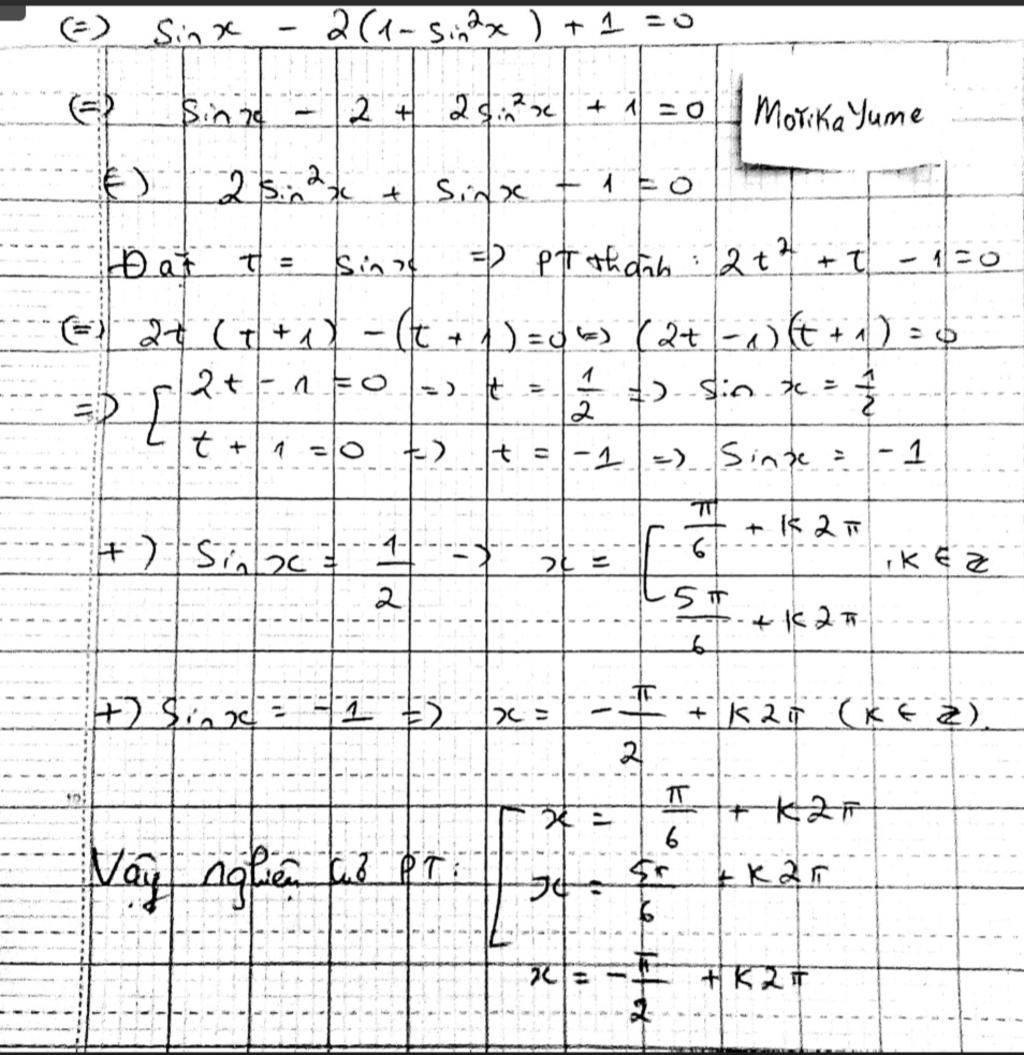 (=) sinx - 2(1 - sin²x) + 1 = 0
(=) sinx - 2 + 2sin²x + 1 = 0
MorikaYume
(=) 2sin²x + sinx - 1 = 0
Đặt t = sinx => PT thành: 2t² + t - 1 = 0
(=) 2t (t + 1) - (t + 1) = 0 (=) (2t - 1)(t + 1) = 0
=> [ 2t - 1 = 0 => t = 1/2 => sin x = 1/2
t + 1 = 0 => t = -1 => sinx = -1
+) sin x = 1/2 -> x = [ π/6 + k2π
5π/6 + k2π , k ∈ Z
+) sinx = -1 => x = -π/2 + k2π (k ∈ Z).
Vậy nghiệm củ PT: [ x = π/6 + k2π
x = 5π/6 + k2π
x = -π/2 + k2π